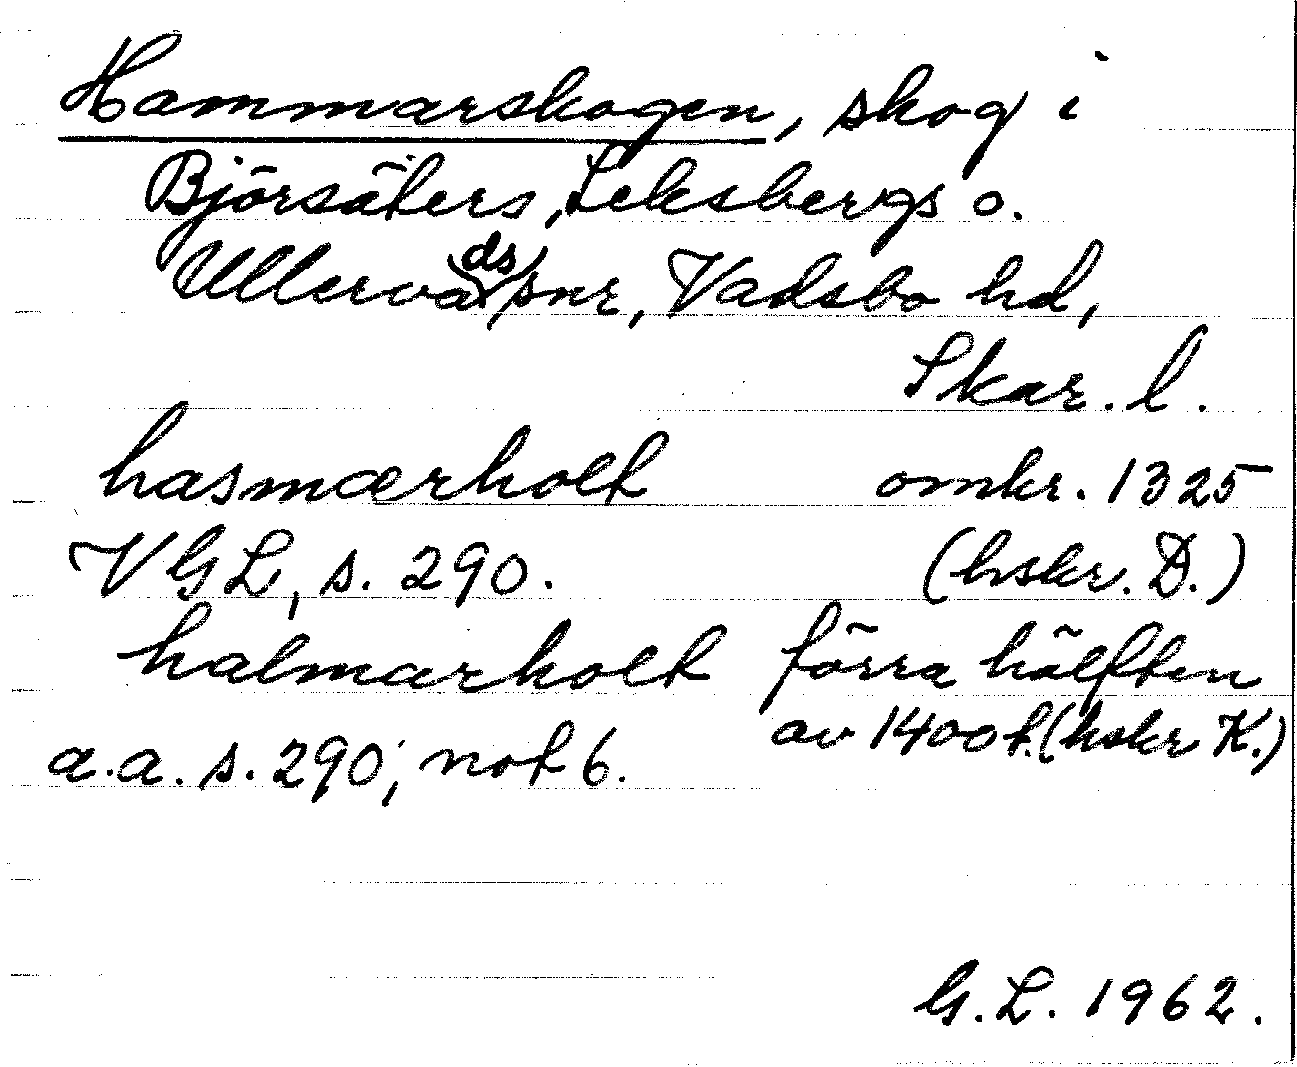 Hammarskogen, skog i
Björsäters, Leksbergs o.
Ullervads snr, Vadsbo hd,
Skar. l.
hasmærholt omkr. 1325
VGL, s. 290. (hskr. D.)
halmarholt förra hälften
av 1400 t. (hskr K.)
a.a. s. 290, not 6.
G.L. 1962.